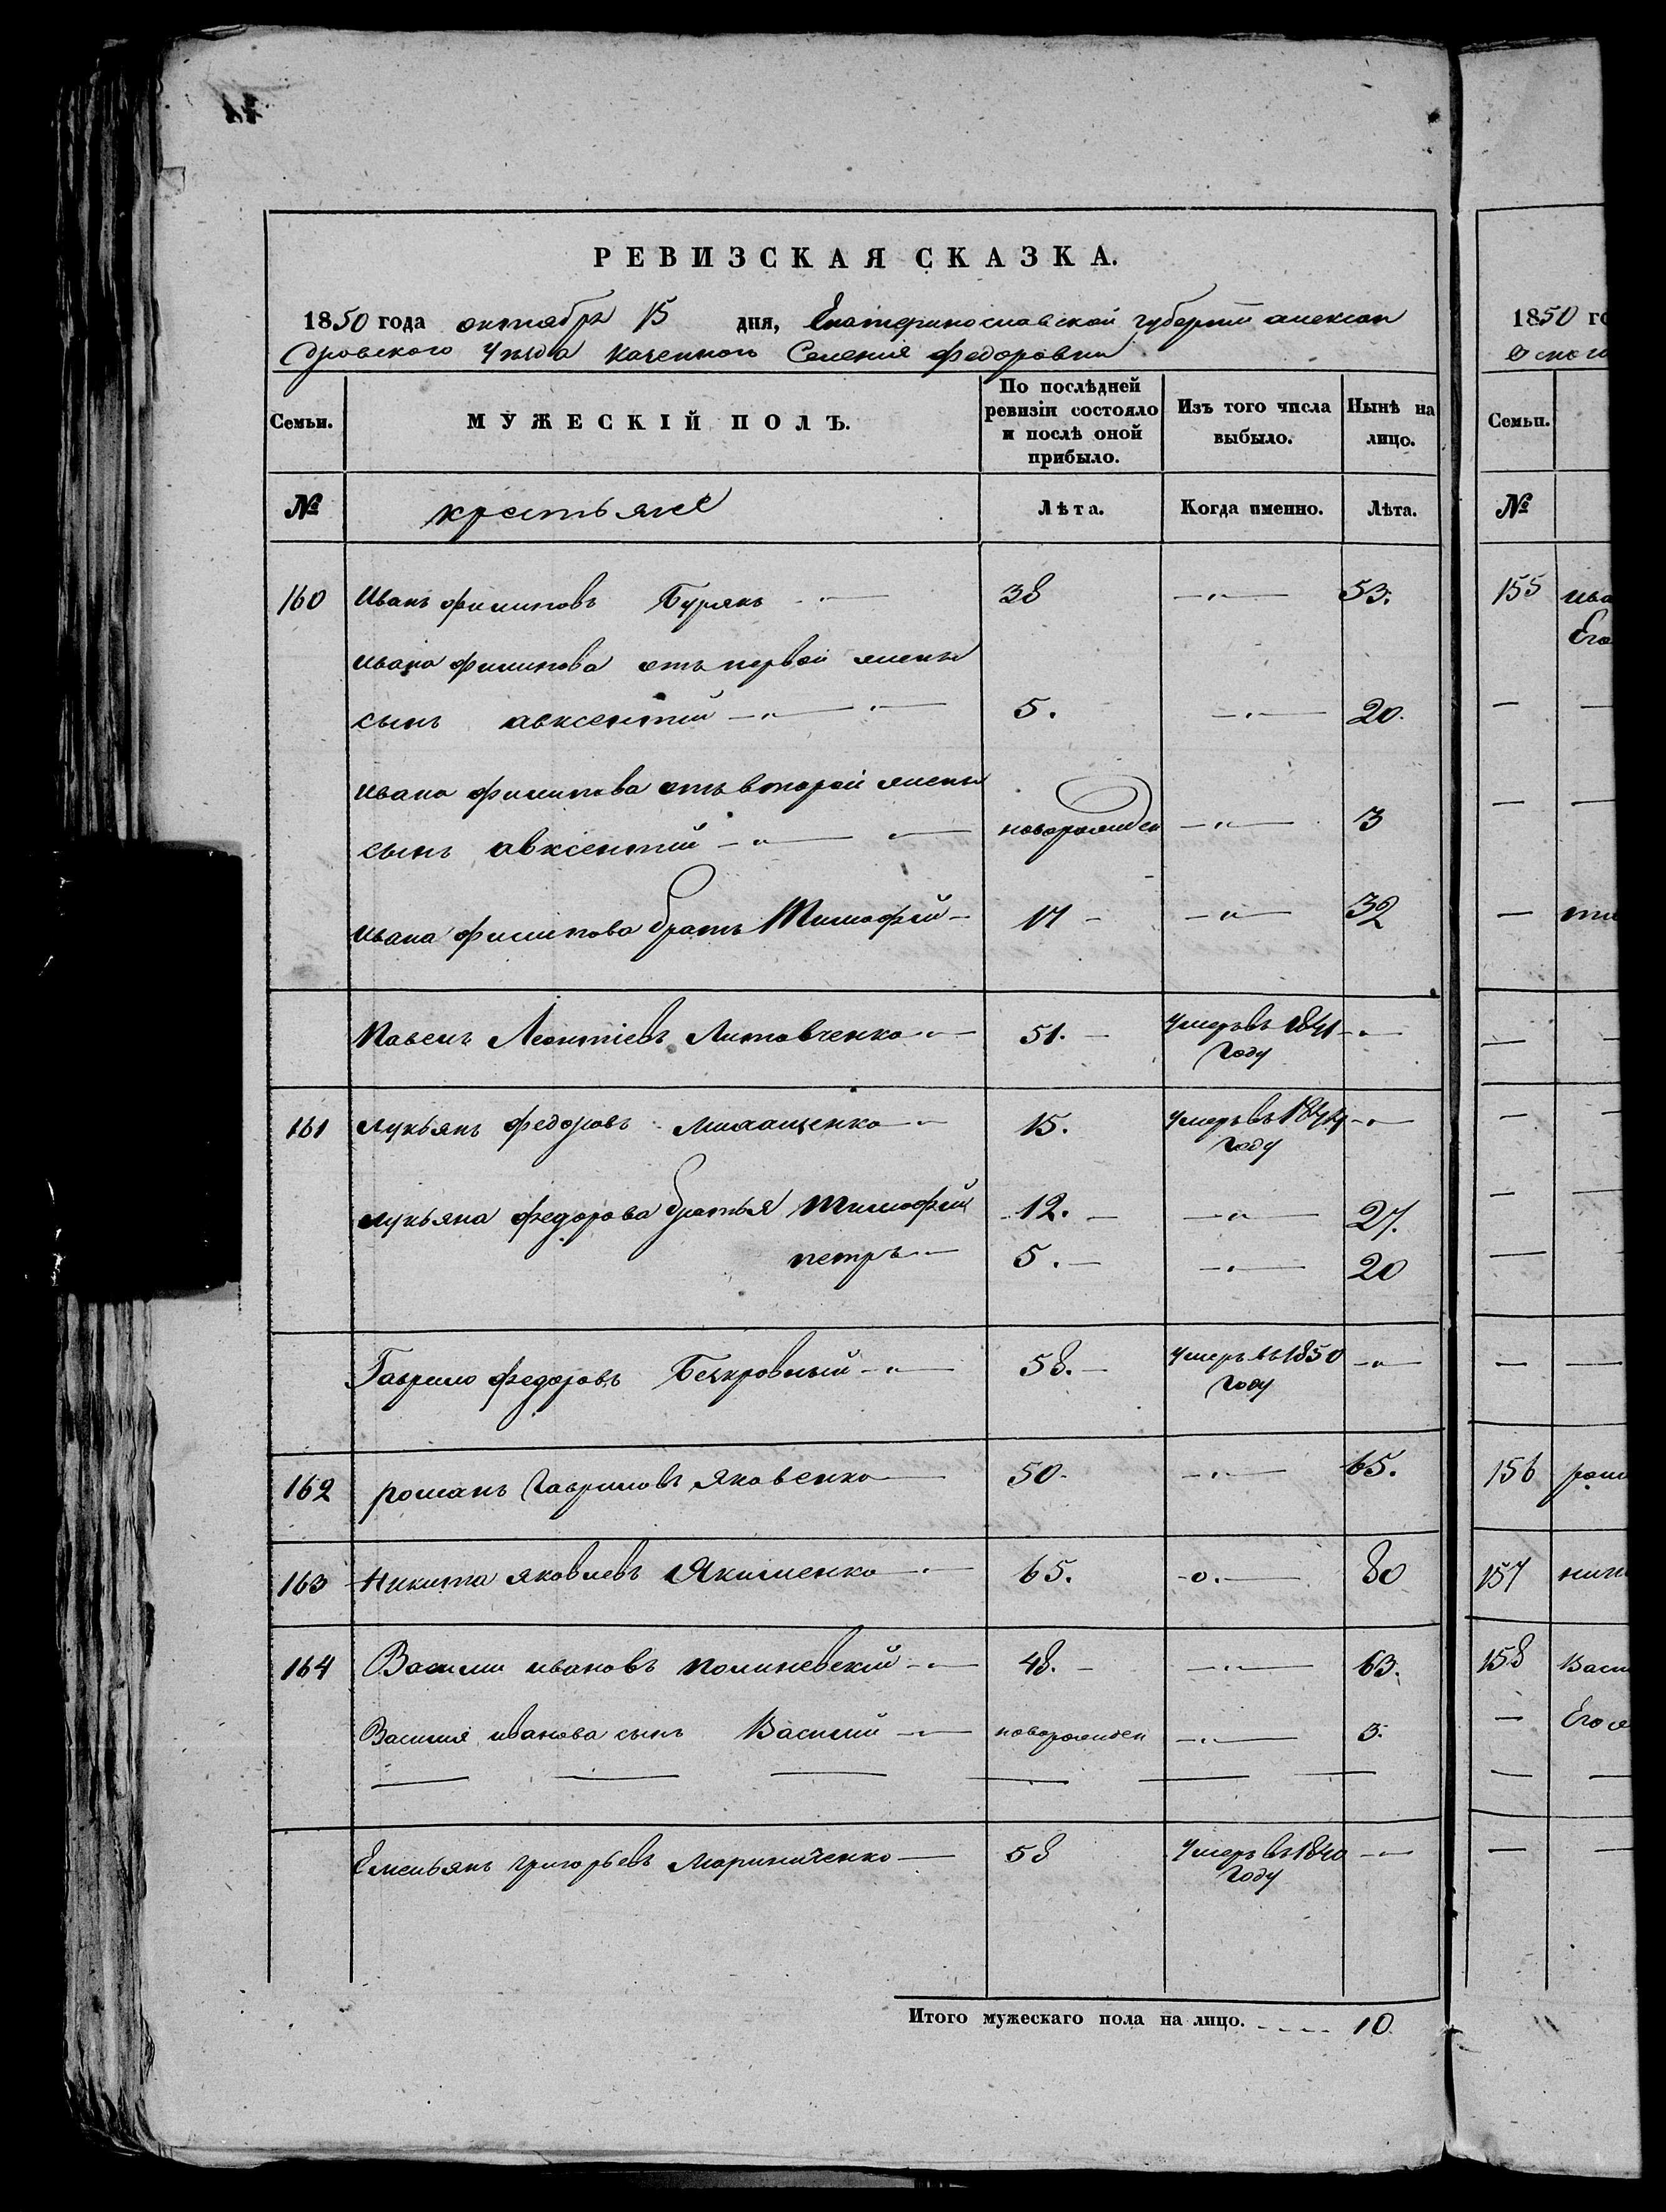 РЕВИЗСКАЯ СКАЗКА.
1850 года октября 15 дня, Екатеринославской губернии алексан
дровского уезда казенного Селения федоровки
Семьи.
МУЖЕСКІЙ ПОЛЪ.
По послѣдней ревизіи состояло и послѣ оной прибыло.
Изъ того числа выбыло.
Нынѣ на лицо.
№ крестьяне Лѣта. Когда именно. Лѣта.
160 Иванъ филиповъ Бурякъ 38 53.
ивана филипова отъ первой жены
сынъ авксентий 5. 20.
ивана филипова отъ второй жены
сынъ авксентий новорожден 3
ивана филипова братъ Тимофей 17 32
Павелъ Леонтіевъ Литовченко 51. умеръ въ 1841
году
161 лукьянъ федоровъ 15. умеръ въ 1844
году
лукьяна федорова братья Тимофей 12. 27.
петръ 5. 20
Гаврило федоровъ Безкровный 58. умеръ въ 1850
году
162 романъ Гавриловъ Яковенко 50. 65.
163 Никита яковлевъ Якименко 65. 80
164 Василий ивановъ полиневский 48. 63.
Василия иванова сынъ Василий новорожден 3.
Емельянъ григорьевъ Мариниченко 58 умеръ въ 1840
году
Итого мужескаго пола на лицо. 10.
1850 го
Семьи.
№
155 ива
Его
156 ром
157 ники
158 Васи
Его